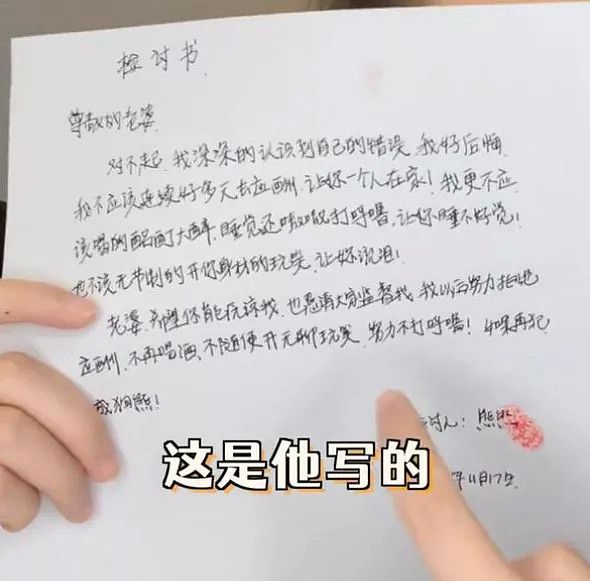 检讨书
尊敬的老婆
对不起,我深深的认识到自己的错误,我好后悔.
我不应该连续好多天去应酬,让你一个人在家!我更不应
该喝的酩酊大醉,睡觉还嗷嗷打呼噜,让你睡不好觉!
也不该无节制的开你身材的玩笑,让你流泪!
老婆,希望你能原谅我,也恳请大家监督我,我以后努力拒绝
应酬,不再喝酒,不随便开无聊玩笑,努力不打呼噜!如果再犯
我狗熊!
讨人:熊熊
年11月17日
这是他写的